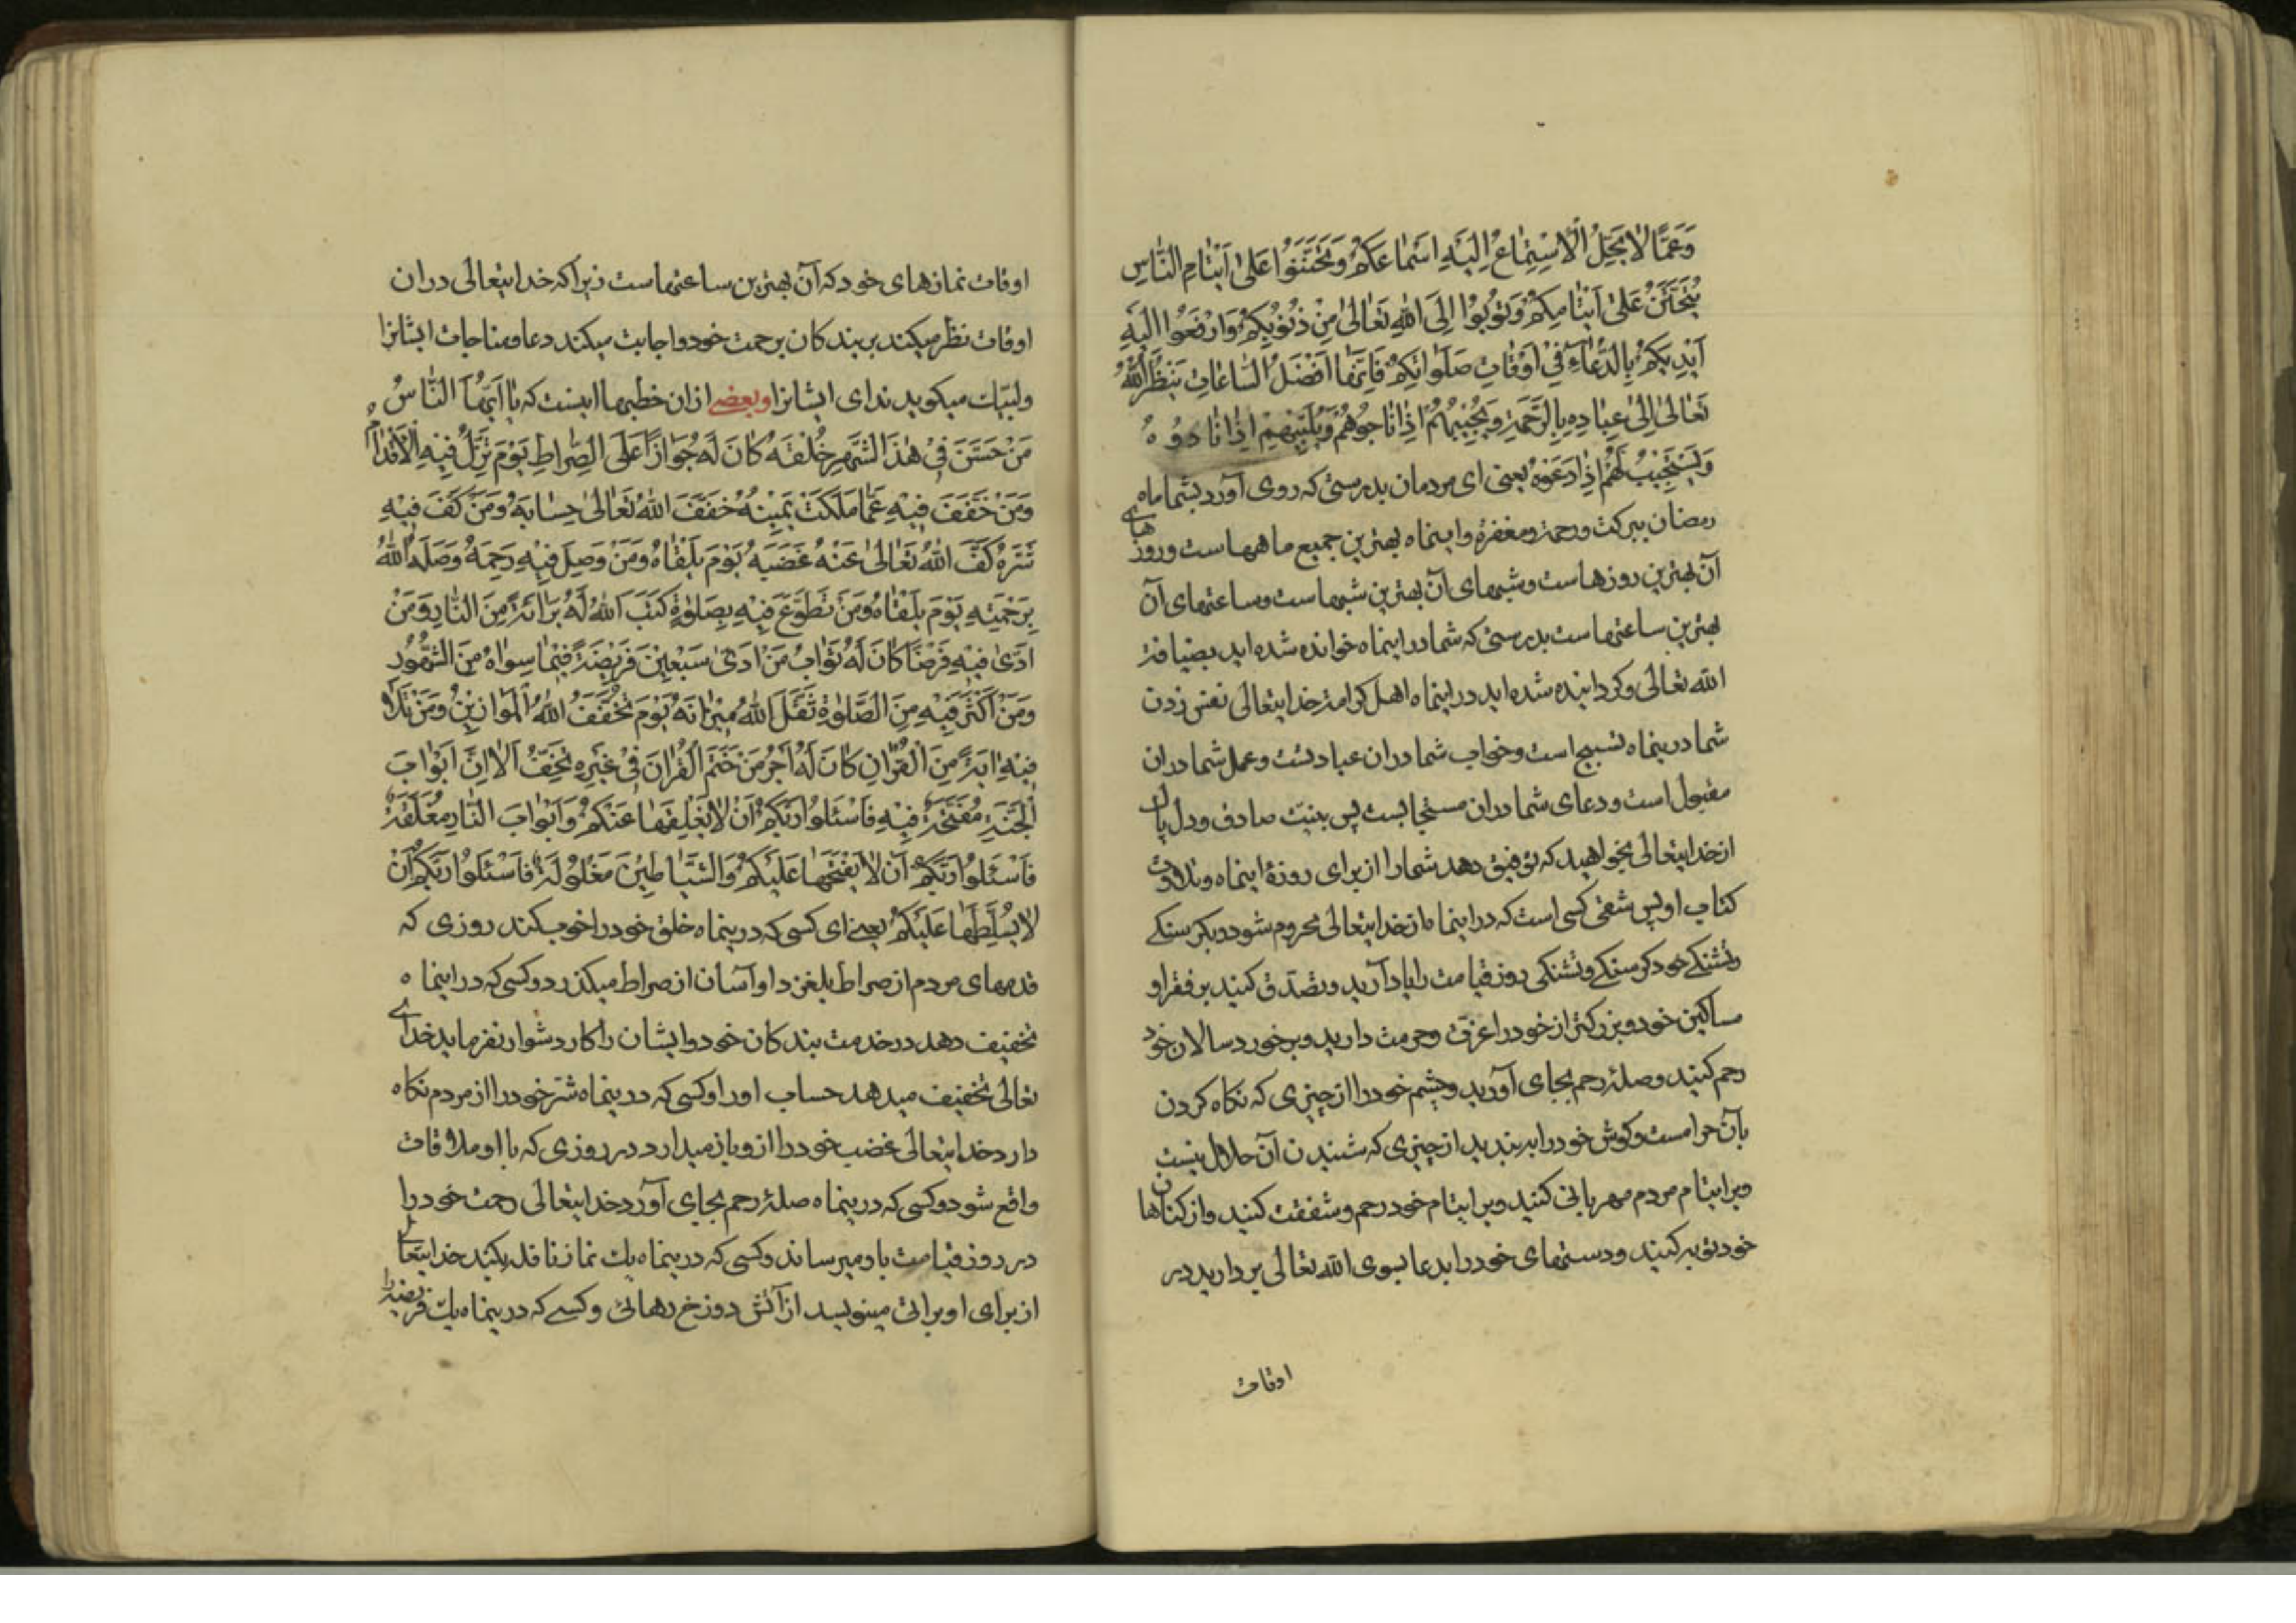 وَعَمَّا لَا يَحِلُّ الْاِسْتِمَاعُ اِلَيْهِ اَسْمَاعَكُمْ وَتَحَنَّنُوا عَلىٰ اَيْتَامِ النَّاسِ
يُتَحَنَّنْ عَلىٰ اَيْتَامِكُمْ وَتُوبُوا اِلَى اللهِ تَعَالىٰ مِنْ ذُنُوبِكُمْ وَارْفَعُوا اِلَيْهِ
اَيْدِيَكُمْ بِالدُّعَاءِ فِى اَوْقَاتِ صَلَوَاتِكُمْ فَاِنَّهَا اَفْضَلُ السَّاعَاتِ يَنْظُرُ اللهُ
تَعَالىٰ اِلىٰ عِبَادِهِ بِالرَّحْمَةِ وَيُجِيبُهُمْ اِذَا نَاجَوْهُمْ وَيُلَبِّيهِمْ اِذَا نَادَوْهُ
وَيَسْتَجِيبُ لَهُمْ اِذَا دَعَوْهُ يعنى اى مردمان بدرستى كه روى آورد بشما ماه
رمضان ببركت ورحمة ومغفرة واينماه بهترين جميع ماهها ست وروزهاى
آن بهترين روزها ست وشبهاى آن بهترين شبها ست وساعتهاى آن
بهترين ساعتها ست بدرستى كه شما در اينماه خوانده شده ايد بضيافة
الله تعالى وكردانيده شده ايد در اينماه اهل كرامة خدايتعالى نفس زدن
شما درينماه تسبيح است وخواب شما دران عبادتست وعمل شما دران
مقبول است ودعاى شما دران مستجابست پس بنيت صادق ودل پاك
از خدايتعالى بخواهيد كه توفيق دهد شما را از براى روزۀ اينماه وتلاوت
كتاب او پس شقى كسى است كه در اينماه از خدايتعالى محروم شود وبكرسنكے
وتشنكے خود كرسنكے وتشنكى روز قيامت را ياد آريد وتصدق كنيد بر فقرا و
مساكين خود وبزركتر از خود را عزت وحرمت داريد وبر خورد سالان خود
رحم كنيد وصلۀ رحم بجاى آوريد وچشم خود را از چيزى كه نكاه كردن
بآن حرامست وكوش خود را ببنديد از چيزى كه شنيدن آن حلال نيست
وبر ايتام مردم مهربانى كنيد وبر ايتام خود رحم وشفقت كنيد واز كناهان
خود توبه كنيد ودستهاى خود را بدعا بسوى الله تعالى برداريد در
اوقات
اوقات نمازهاى خود كه آن بهترين ساعتها ست زيرا كه خدايتعالى دران
اوقات نظر ميكند بر بندكان برحمت خود واجابت ميكند دعا ومناجات ايشانرا
ولبيك ميكويد نداى ايشانرا وبعضے ازان خطبها اينست كه يَا اَيُّهَا النَّاسُ
مَنْ حَسَّنَ فِى هٰذَا الشَّهْرِ خُلْقَهُ كَانَ لَهُ جَوَازًا عَلَى الصِّرَاطِ يَوْمَ تَزِلُّ فِيهِ الْاَقْدَامُ
وَمَنْ خَفَّفَ فِيهِ عَمَّا مَلَكَتْ يَمِينُهُ خَفَّفَ اللهُ تَعَالىٰ حِسَابَهُ وَمَنْ كَفَّ فِيهِ
شَرَّهُ كَفَّ اللهُ تَعَالىٰ عَنْهُ غَضَبَهُ يَوْمَ يَلْقَاهُ وَمَنْ وَصَلَ فِيهِ رَحِمَهُ وَصَلَهُ اللهُ
بِرَحْمَتِهِ يَوْمَ يَلْقَاهُ وَمَنْ تَطَوَّعَ فِيهِ بِصَلوٰةٍ كَتَبَ اللهُ لَهُ بَرَائَةً مِنَ النَّارِ وَمَنْ
اَدّىٰ فِيهِ فَرْضًا كَانَ لَهُ ثَوَابُ مَنْ اَدّىٰ سَبْعِينَ فَرِيضَةً فِيمَا سِوَاهُ مِنَ الشُّهُورِ
وَمَنْ اَكْثَرَ فِيهِ مِنَ الصَّلوٰةِ ثَقَّلَ اللهُ مِيزَانَهُ يَوْمَ تُخَفَّفُ اللهُ الْمَوَازِينُ وَمَنْ تَلَا
فِيهِ اٰيَةً مِنَ الْقُرْاٰنِ كَانَ لَهُ اَجْرُ مَنْ خَتَمَ الْقُرْاٰنَ فِى غَيْرِهِ تُخَفِّفُ اَلَا اِنَّ اَبْوَابَ
الْجَنَّةِ مُفَتَّحَةٌ فِيهِ فَاسْئَلُوا رَبَّكُمْ اَنْ لَا يُغْلِقَهَا عَنْكُمْ وَاَبْوَابَ النَّارِ مُغَلَّقَةٌ
فَاسْئَلُوا رَبَّكُمْ اَنْ لَا يَفْتَحَهَا عَلَيْكُمْ وَالشَّيَاطِينَ مَغْلُولَةٌ فَاسْئَلُوا رَبَّكُمْ اَنْ
لَا يُسَلِّطَهَا عَلَيْكُمْ يعنے اى كسى كه درينماه خلق خود را خوب كند روزى كه
قدمهاى مردم از صراط بلغزد او آسان از صراط ميكذرد وكسى كه در اينماه
تخفيف دهد در خدمت بندكان خود وايشان را كار دشوار نفرمايد خداے
تعالى تخفيف ميدهد حساب او را وكسى كه درينماه شر خود را از مردم نكاه
دارد خدايتعالى غضب خود را ازو باز ميدارد در روزى كه با او ملاقات
واقع شود وكسى كه درينماه صلۀ رحم بجاى آورد خدايتعالى رحمت خود را
در روز قيامت باو ميرساند وكسى كه درينماه يك نماز نافله بكند خدايتعالے
از براى او براتى مينويسد از آتش دوزخ رهائى وكسے كه درينماه يك فريضه را